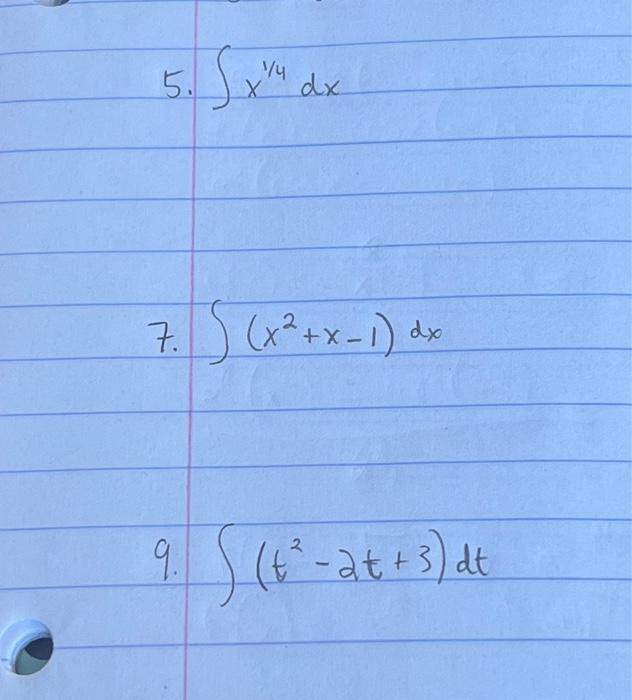 5. ∫ x^{1/4} dx
7. ∫ (x² + x - 1) dx
9. ∫ (t² - 2t + 3) dt